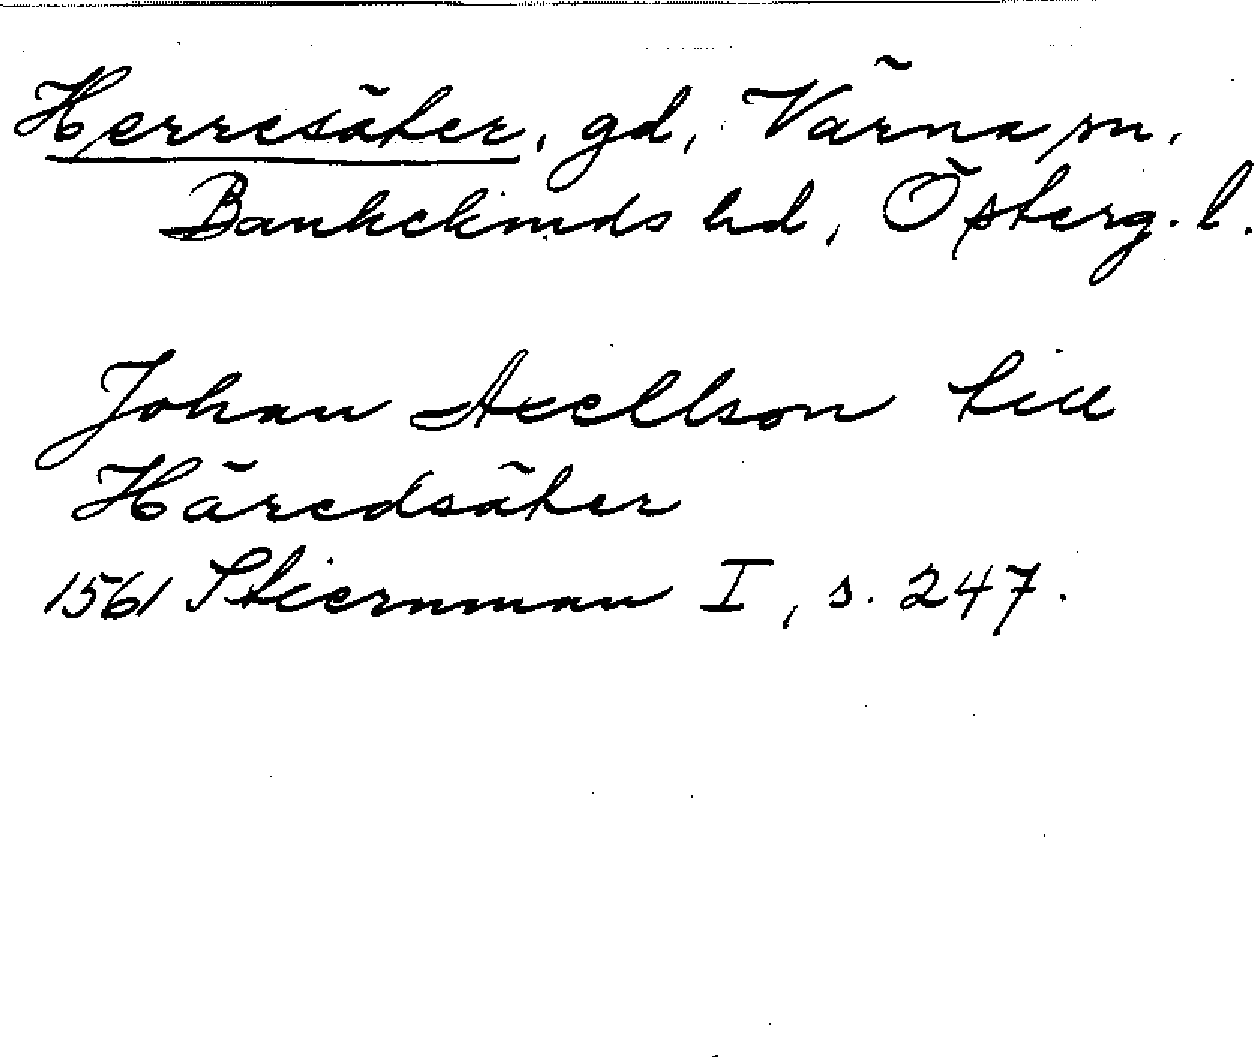 Herresäter, gd, Värna sn.
Bankekinds hd, Österg. l.
Johan Axellson till
Häredsäter
1561 Stiernman I, s. 247.